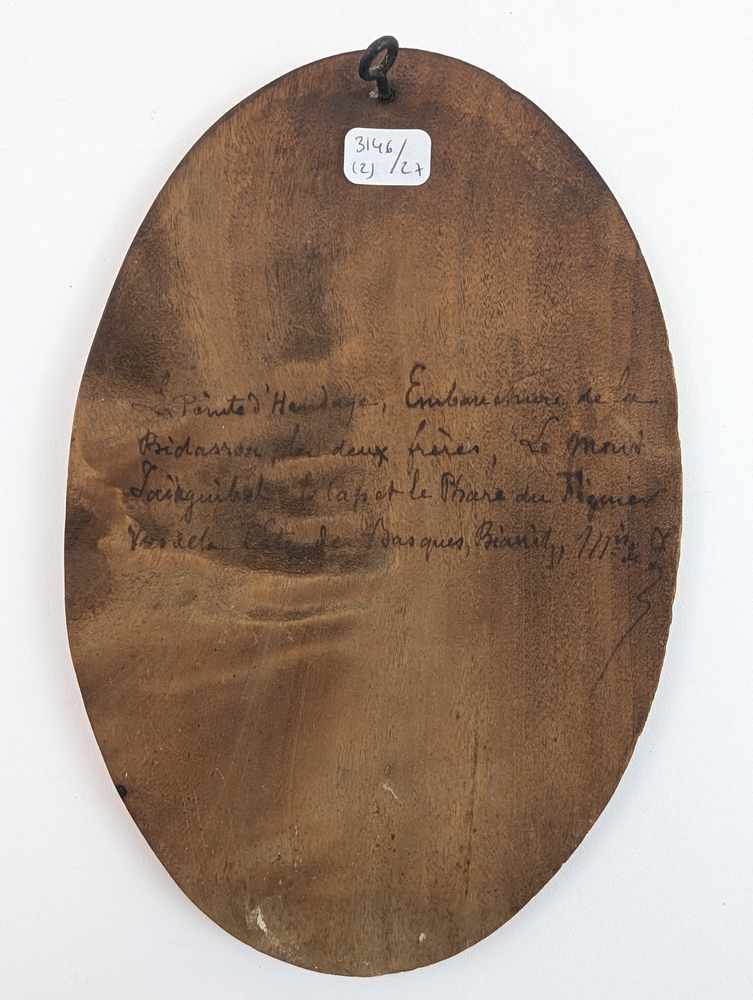 3146/27
(2)
La Pointe d'Hendaye, Embouchure de la
Bidassoa, les deux frères, Le Mont
Jaïzquibel le Cap et le Phare du Figuier
Vus de la Côte des Basques, Biarritz,